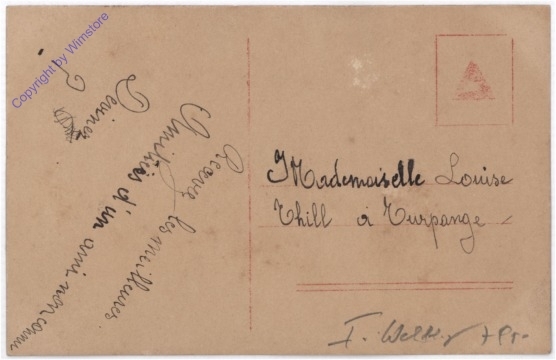 Copyright by Wimstore
Recevez les meilleures
Amitiés d'un ami non connu
Deviner
?
Mademoiselle Louise
Thill à Turpange
I.